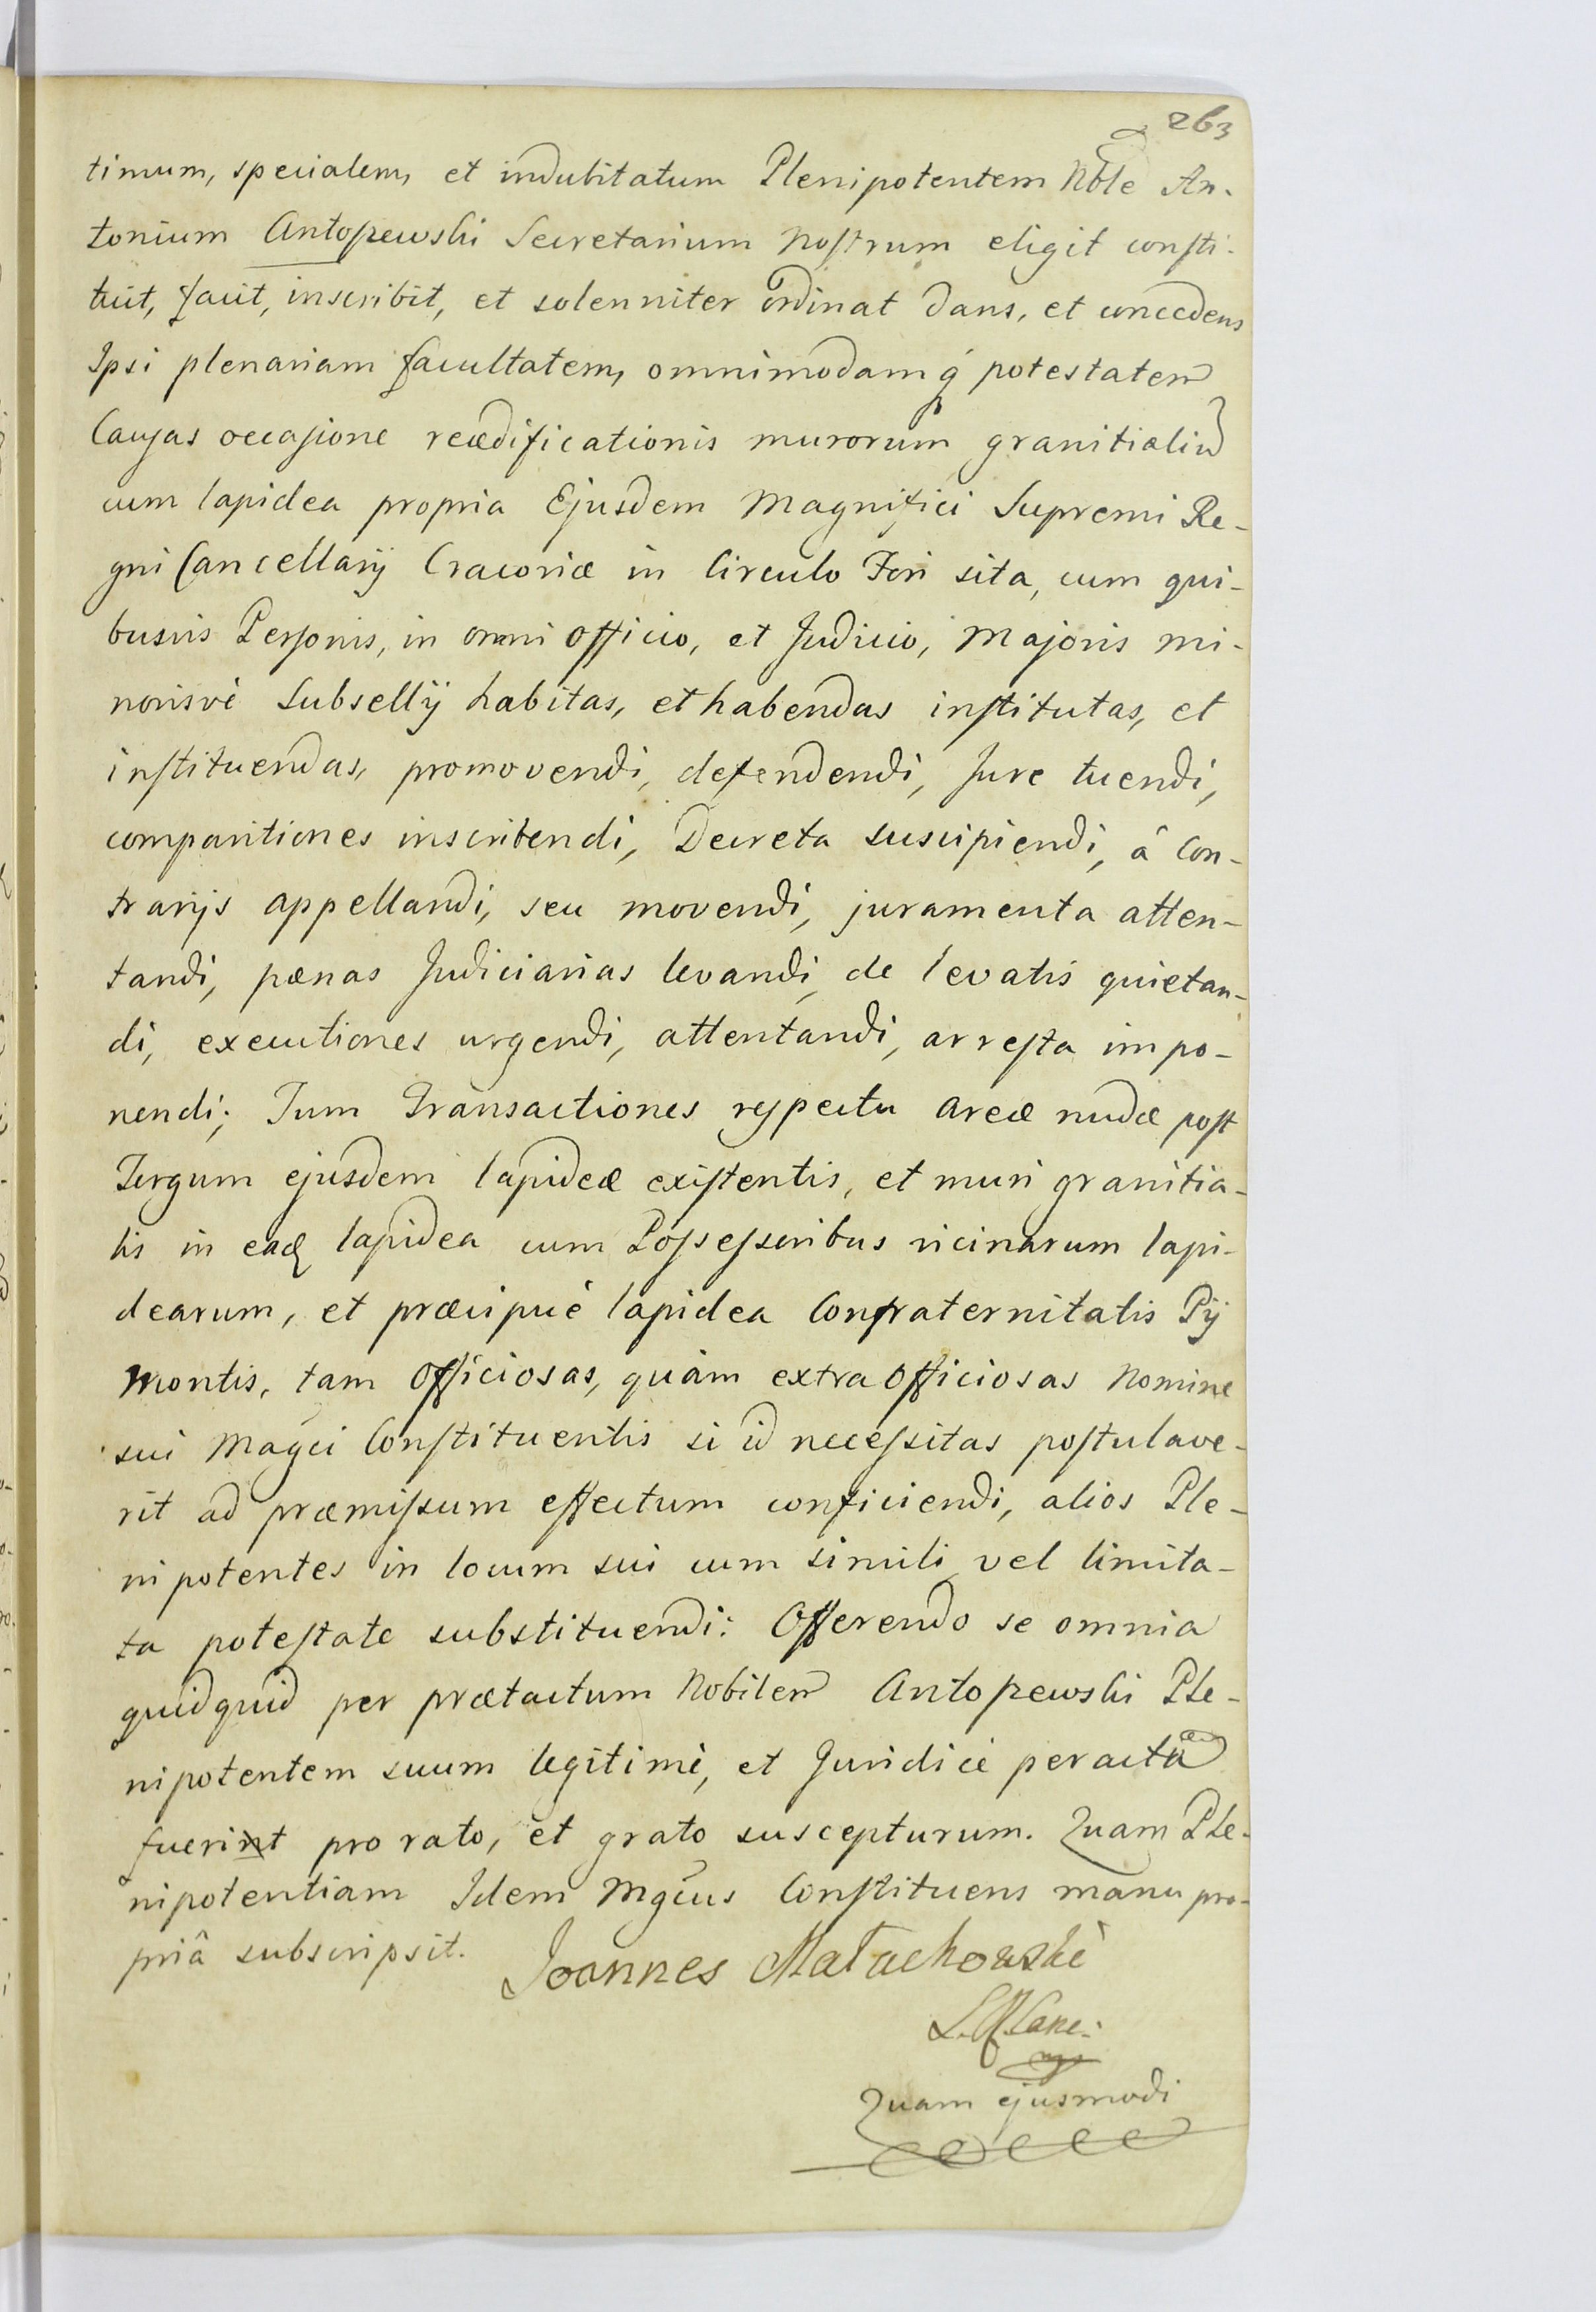 263
timum, specialem, et indubitatum Plenipotentem Nble An-
tonium Antoszewski Secretarium Nostrum eligit consti-
tuit, facit, inscribit, et solenniter ordinat dans, et concedens
Ipsi plenariam facultatem, omnimodamq́ potestatem
Causas occasione reædificationis murorum granitialiu
cum lapidea propria Ejusdem Magnifici Supremi Re-
gni Cancellarij Cracoviæ in Circulo Fori sita, cum qui-
busvis Personis, in omni officio, et Judicio, Majoris mi-
norisvè Subsellij habitas, et habendas institutas, et
instituendas, promovendi, defendendi, Jure tuendi,
comparitiones inscribendi, Decreta suscipiendi, â Con-
trarijs appellandi, seu movendi, juramenta atten-
tandi, pænas Judiciarias levandi, de levatis quietan-
di, executiones urgendi, attentandi, arresta impo-
nendi; Tum Transactiones respectu areæ nudæ post
Tergum ejusdem lapideæ existentis, et muri granitia-
lis in eadɇ lapidea cum Possessoribus vicinarum lapi-
dearum, et præcipuè lapidea Confraternitatis Pij
Montis, tam Officiosas, quàm extra Officiosas Nomine
sui Magci Constituentis si id necessitas postulave-
rit ad præmissum effectum conficiendi, alios Ple-
nipotentes in locum sui cum simili vel limita-
ta potestate substituendi: Offerendo se omnia
quidquid per prætactum Nobilem Antoszewski Ple-
nipotentem suum legitimè, et Juridicè peracta
fuerint pro rato, et grato suscepturum. Quam Ple-
nipotentiam Idem Mgcus Constituens manu pro-
priâ subscripsit. Joannes Małachowski
Canc:
mp
Quam ejusmodi